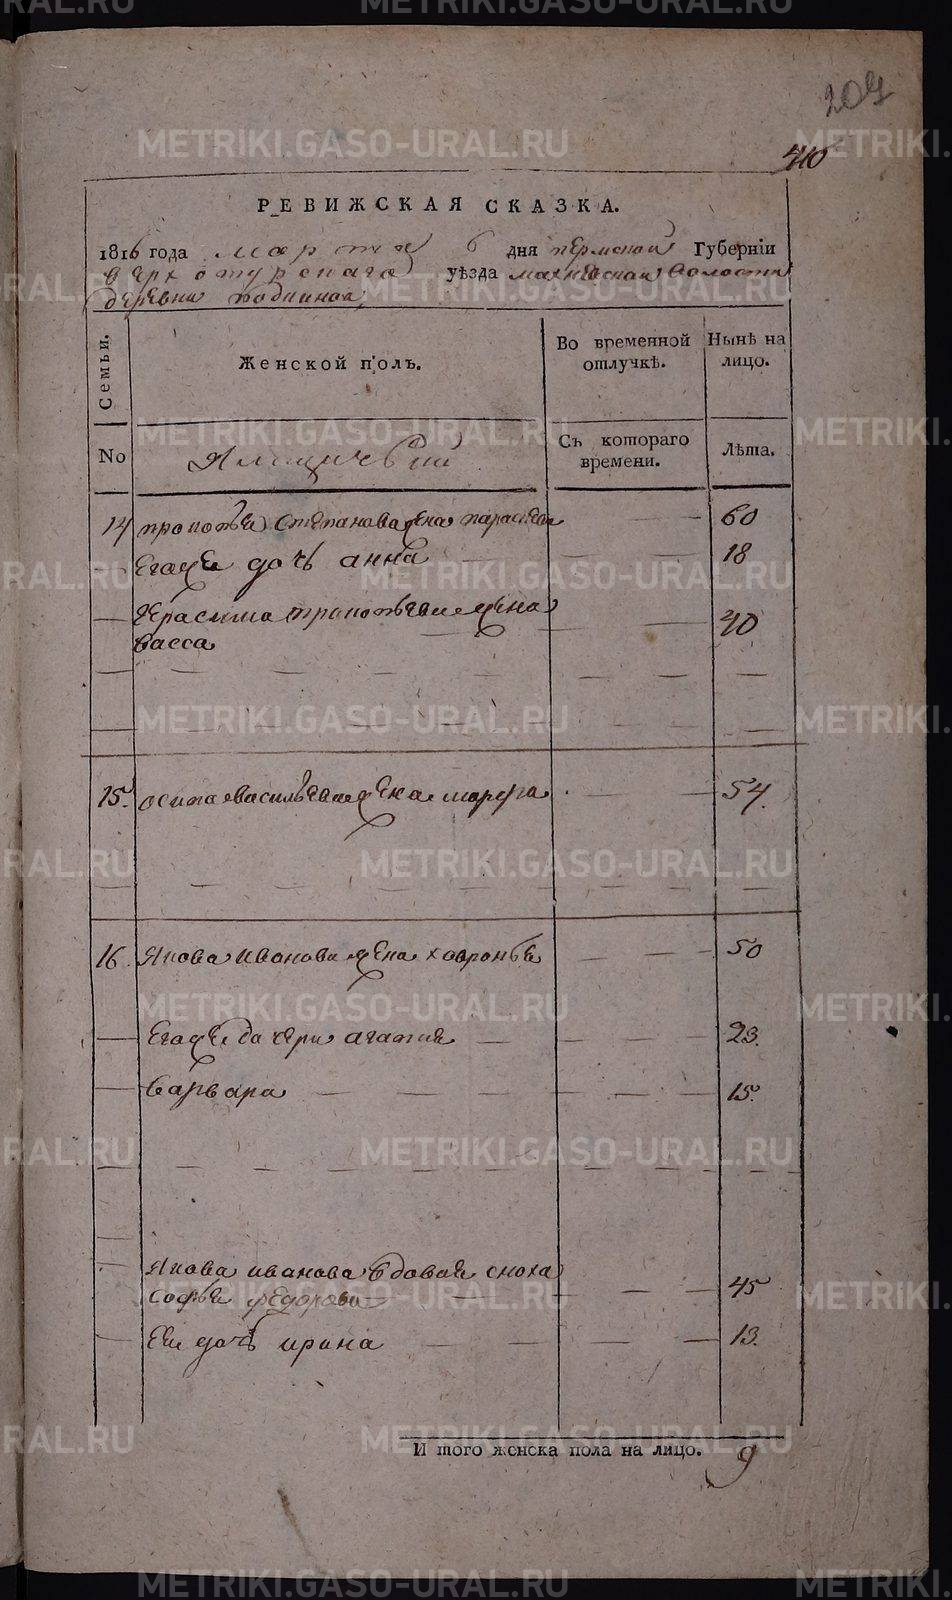 METRIKI.GASO-URAL.RU
204
410
РЕВИЖСКАЯ СКАЗКА.
1816 года марта 6 дня пермской Губерніи
верхотурскаго уѣзда махневской волости
деревни
Семьи. Женской полъ. Во временной отлучкѣ. Нынѣ на лицо.
No Ямщичьей Съ котораго времени. Лѣта.
14 прокопья степанова жена парасковья 60
Егоже дочь анна 18
Герасима прокопьева жена
васса 40
15. осипа васильева жена марфа 54.
16. Якова иванова жена хавронья 50
Егоже дочери агафия 23.
варвара 15.
Якова иванова вдовая сноха
софья федорова 45
Ея дочь ирина 13.
И того женска пола на лицо. 9